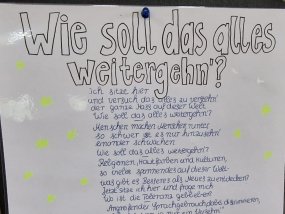 Wie soll das alles
weitergehn'?
Ich sitze hier
und versuch das alles zu versteh'n
der ganze Hass auf dieser Welt
Wie soll das alles weitergehn?
Menschen machen Menschen runter
so schwer ist es nur hinzuseh'n
einander schwächen
Wie soll das alles weitergeh'n?
Religionen, Hautfarben und Kulturen,
so vieles spannendes auf dieser Welt
was gibt es Besseres als Neues zu entdecken?
Jetzt sitze ich hier und frage mich
Wo ist die Toleranz geblieben?
Angreifender Sprachgebrauch, dabei diskriminieren,